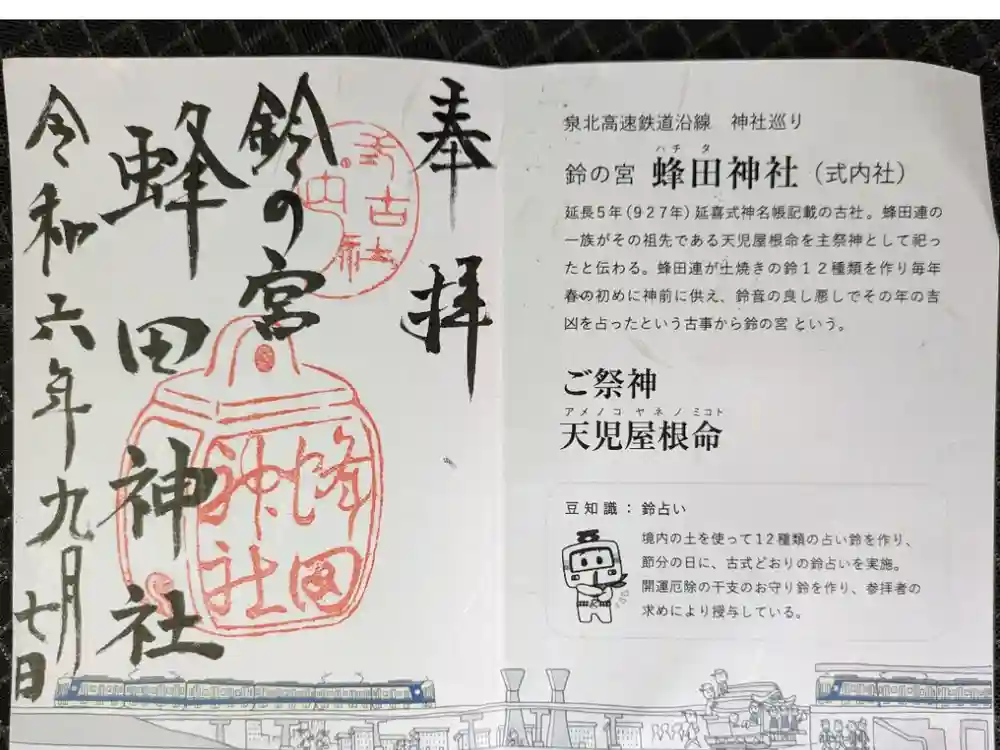 奉拝
鈴の宮
蜂田神社
令和六年九月七日
式内
古社
蜂田
神社
泉北高速鉄道沿線 神社巡り
ハチ タ
鈴の宮 蜂田神社（式内社）
延長5年(927年)延喜式神名帳記載の古社。蜂田連の
一族がその祖先である天児屋根命を主祭神として祀っ
たと伝わる。蜂田連が土焼きの鈴12種類を作り毎年
春の初めに神前に供え、鈴音の良し悪しでその年の吉
凶を占ったという古事から鈴の宮 という。
ご祭神
アメノコ ヤネノ ミコト
天児屋根命
豆知識：鈴占い
境内の土を使って12種類の占い鈴を作り、
節分の日に、古式どおりの鈴占いを実施。
開運厄除の干支のお守り鈴を作り、参拝者の
求めにより授与している。